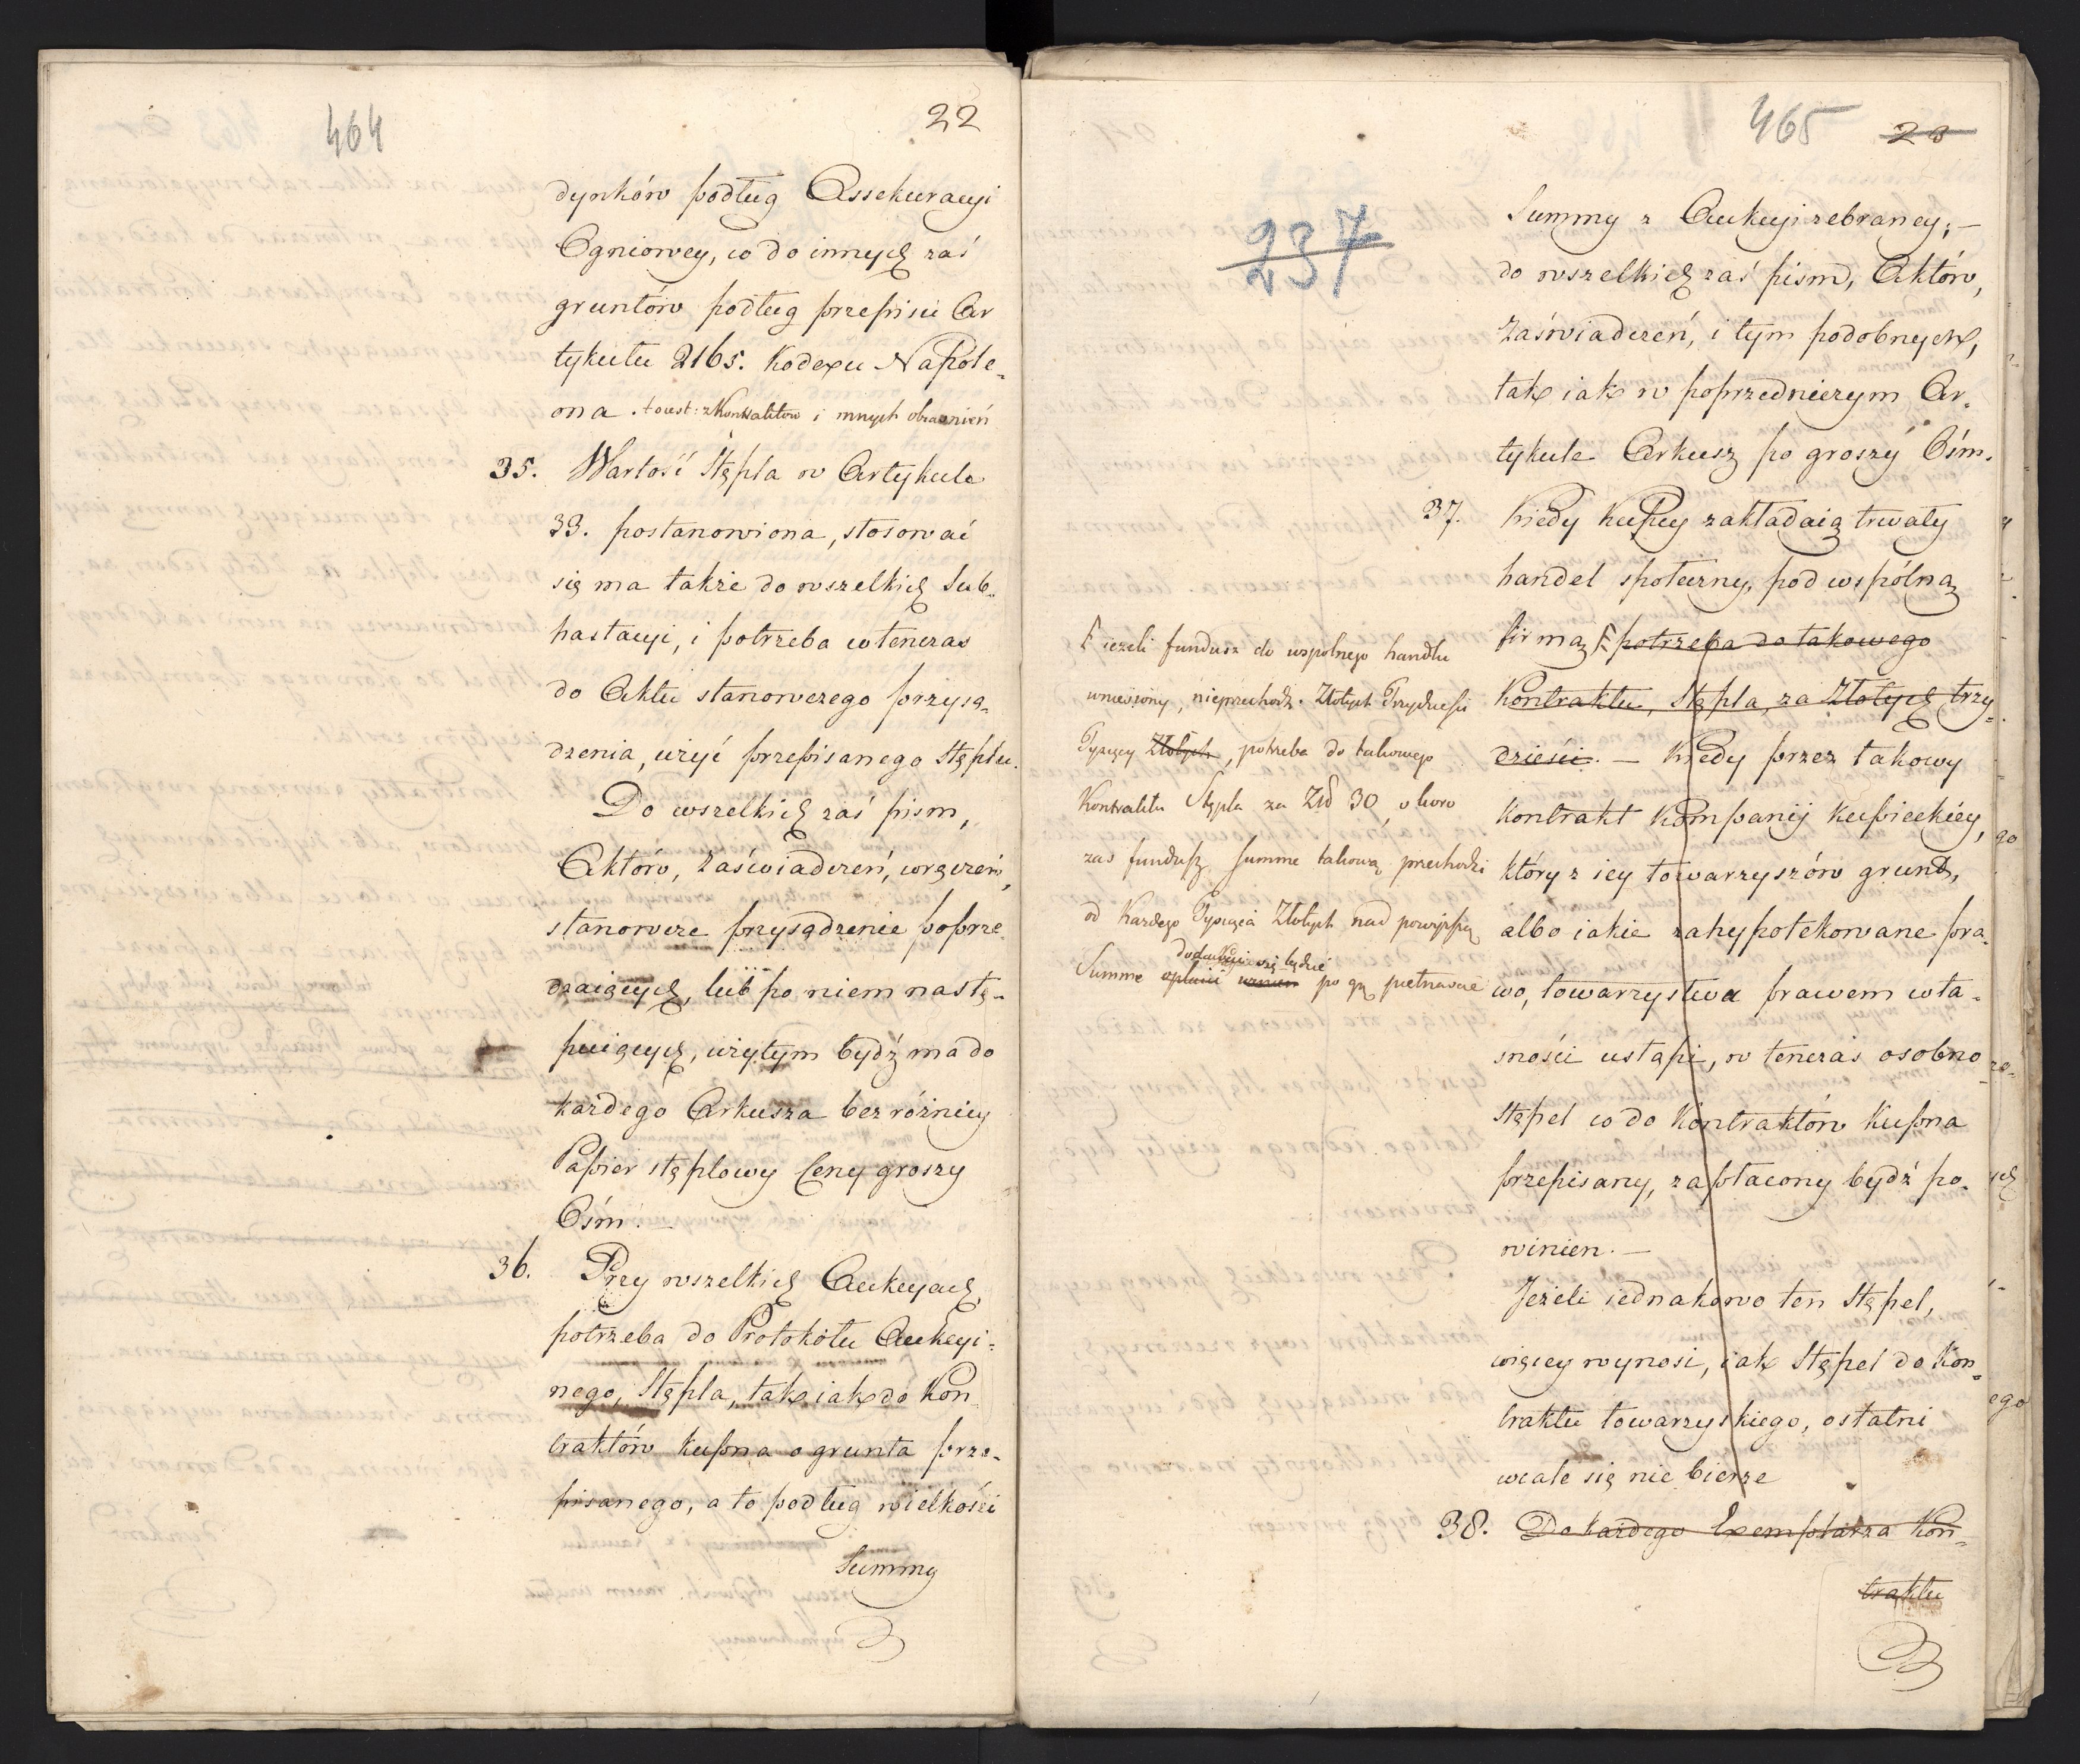 464
22
dynków podług Assekuracyi
Ogniowey, co do innych zaś
gruntów podług przepisu Ar
tykułu 2165. Kodexu Napole-
ona. to iest: z Kontraktów i innych
35. Wartość Stępla w Artykule
33. postanowiona, stosować
się ma także do wszelkich Sub-
hastacyi, i potrzeba wtenczas
do Aktu stanowczego przysą-
dzenia, użyć przepisanego Stęplu.
Do wszelkich zaś pism,
Aktów, zaświadczeń, wręczeń,
stanowcze przysądzenie poprze
dzaiących, lub po niem nastę-
puiących, użytym bydź ma do
każdego Arkusza bez różnicy
Papier stęplowy Ceny groszy
Ośm. —
36. Przy wszelkich Aukcyach,
potrzeba do Protokółu Aukcyi-
nego, Stępla, tak iak do Kon
traktów kupna o grunta prze-
pisanego, a to podług wielkości
Summy
465
23
237
Summy z Aukcyi zebraney; —
do wszelkich zaś pism, Aktów,
Zaświadczeń, i tym podobnych,
tak iak w poprzedniczym Ar-
tykule Arkusz po groszy Ośm.
37. Kiedy Kupcy zakładaią trwały
handel społeczny, pod wspólną
firmą F potrzeba do takowego
Kontraktu, Stępla, za Złotych trzy-
dzieści. — Kiedy przez takowy
kontrakt Kompanij Kupieckiéy,
który z iey towarzyszów grunt,
albo iakie zahypotekowane pra-
wo, towarzystwa prawem wła-
sności ustąpi, w tenczas osobno
Stępel co do Kontraktów Kupna
przepisany, zapłacony bydź po-
winien. —
Jeżeli iednakowo ten Stępel,
więcey wynosi, iak Stępel do Kon-
traktu towarzyskiego, ostatni
wcale się nie bierze
38. Do każdego Exemplarza Kon-
traktu
F ieżeli fundusz do wspolnego handlu
wniesiony, nieprzechodzi Złotych Trzydzieści
Tysięcy Złotych, potrzeba do takowego
Kontraktu Stępla za Złł 30, skoro
zas fundusz summe takową przechodzi
od Każdego Tysiąca Złotych nad powyższą
Summe opłacić po gr piętnascie